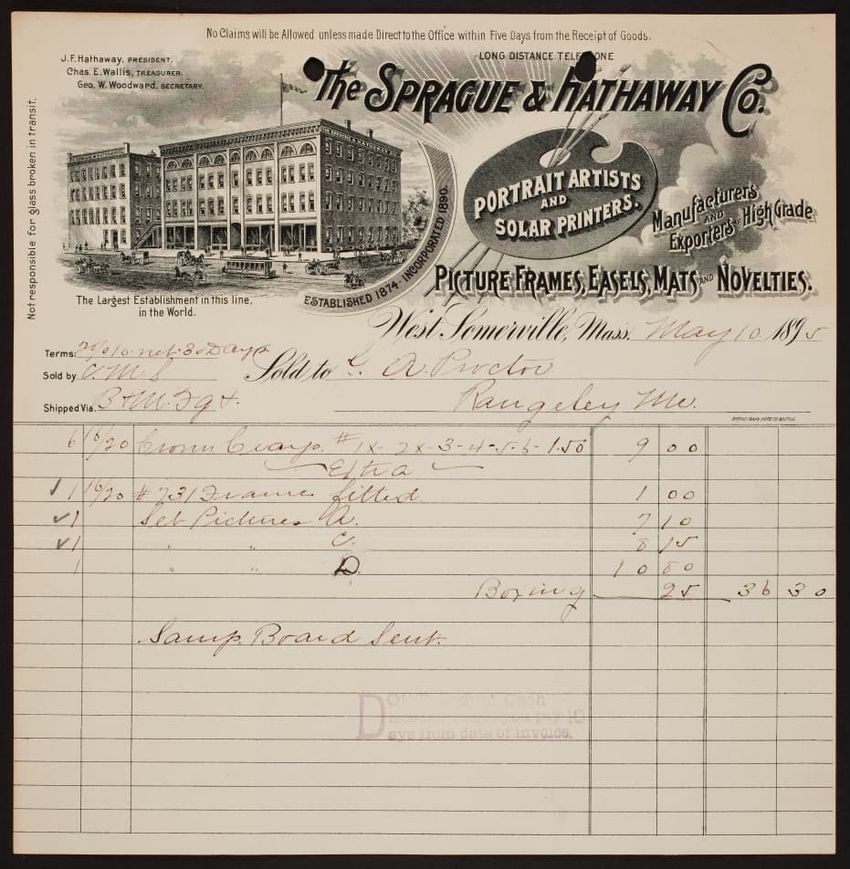 No Claims will be Allowed unless made Direct to the Office within Five Days from the Receipt of Goods.
J. F. Hathaway, PRESIDENT.
Chas. E. Wallis, TREASURER.
Geo. W. Woodward, SECRETARY.
LONG DISTANCE TELEPHONE
The SPRAGUE & HATHAWAY Co.
PORTRAIT ARTISTS
AND
SOLAR PRINTERS.
Manufacturers
AND
Exporters of High Grade
PICTURE FRAMES, EASELS, MATS AND NOVELTIES.
ESTABLISHED 1874. INCORPORATED 1890.
The Largest Establishment in this line,
in the World.
Not responsible for glass broken in transit.
West Somerville, Mass. May 10 1895
Terms: net 30 Days
Sold by C. M. S. Sold to G. A. Proctor
Shipped Via. B & M. Fgt. Rangeley Me.
6 16/20 Crown Crayp. # 1x-2x-3-4-5-6- 1.50 9 00
Extra
1 16/20 # 231 Frame fitted 1 00
1 Set Pictures A. 7 10
1 " " C. 8 15
1 " " D. 10 80
Boxing 25 36 30
Samp. Board Sent.
Cash
10
Days from date of invoice.